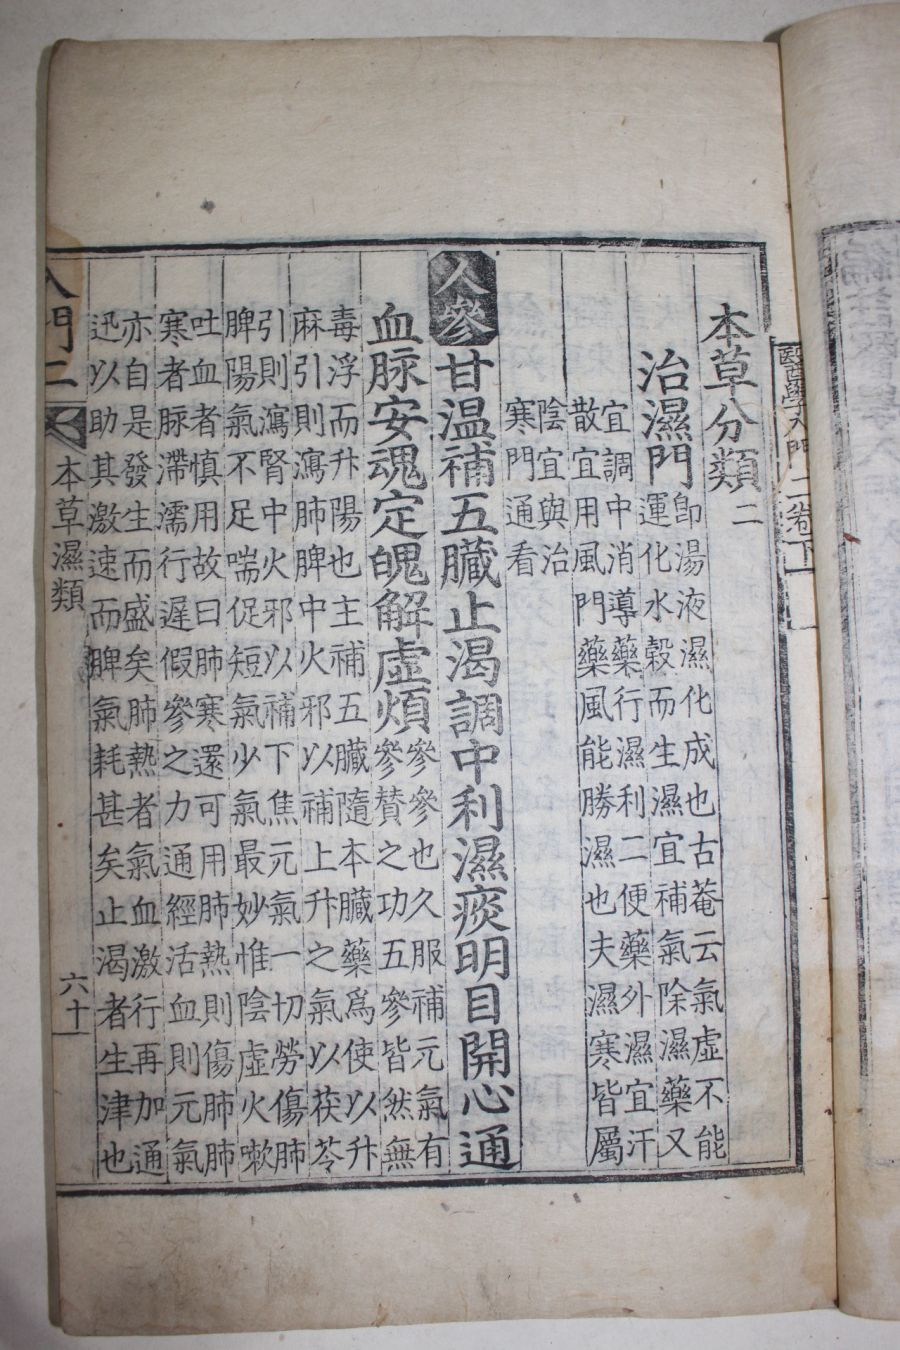 醫學入門二卷下
本草分類二
治濕門
即湯液濕化成也古菴云氣虛不能
運化水穀而生濕宜補氣除濕藥又
宜調中消導藥行濕利二便藥外濕宜汗
散宜用風門藥風能勝濕也夫濕寒皆屬
陰宜與治
寒門通看
人參甘温補五臟止渴調中利濕痰明目開心通
血脉安魂定魄解虛煩
參參也久服補元氣有
參賛之功五參皆然無
毒浮而升陽也主補五臟隨本臟藥爲使以升
麻引則瀉肺脾中火邪以補上升之氣以茯苓
引則瀉腎中火邪以補下焦元氣一切勞傷肺
脾陽氣不足喘促短氣少氣最妙惟陰虛火嗽
吐血者慎用故曰肺寒還可用肺熱則傷肺
寒者脉滯濡行遲假參之力通經活血則元氣
亦自是發生而盛矣肺熱者氣血激行再加通
迅以助其激速而脾氣耗甚矣止渴者生津也
入門二
本草濕類
六十